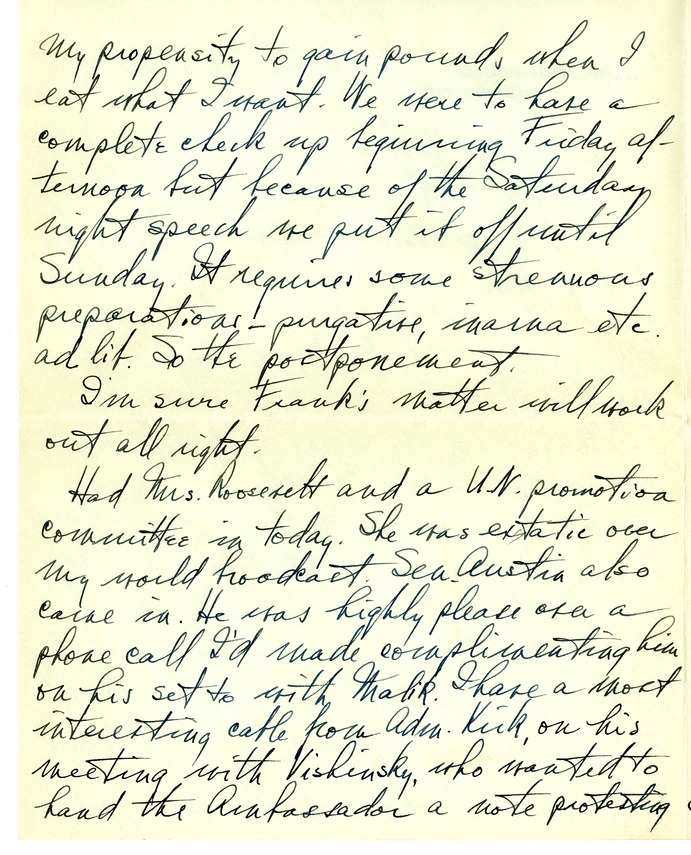 my propensity to gain pounds when I
eat what I want. We were to have a
complete check up beginning Friday af-
ternoon but because of the Saturday
night speech we put it off until
Sunday. It requires some strenuous
preparations - purgative, inama etc.
ad lib. So the postponement.
I'm sure Frank's matter will work
out all right.
Had Mrs. Roosevelt and a U.N. promotion
committee in today. She was extatic over
my world broadcast. Sen. Austin also
came in. He was highly please over a
phone call I'd made complimenting him
on his set to with Malik. I have a most
interesting cable from Adm. Kirk, on his
meeting with Vishinsky, who wanted to
hand the Ambassador a note protesting